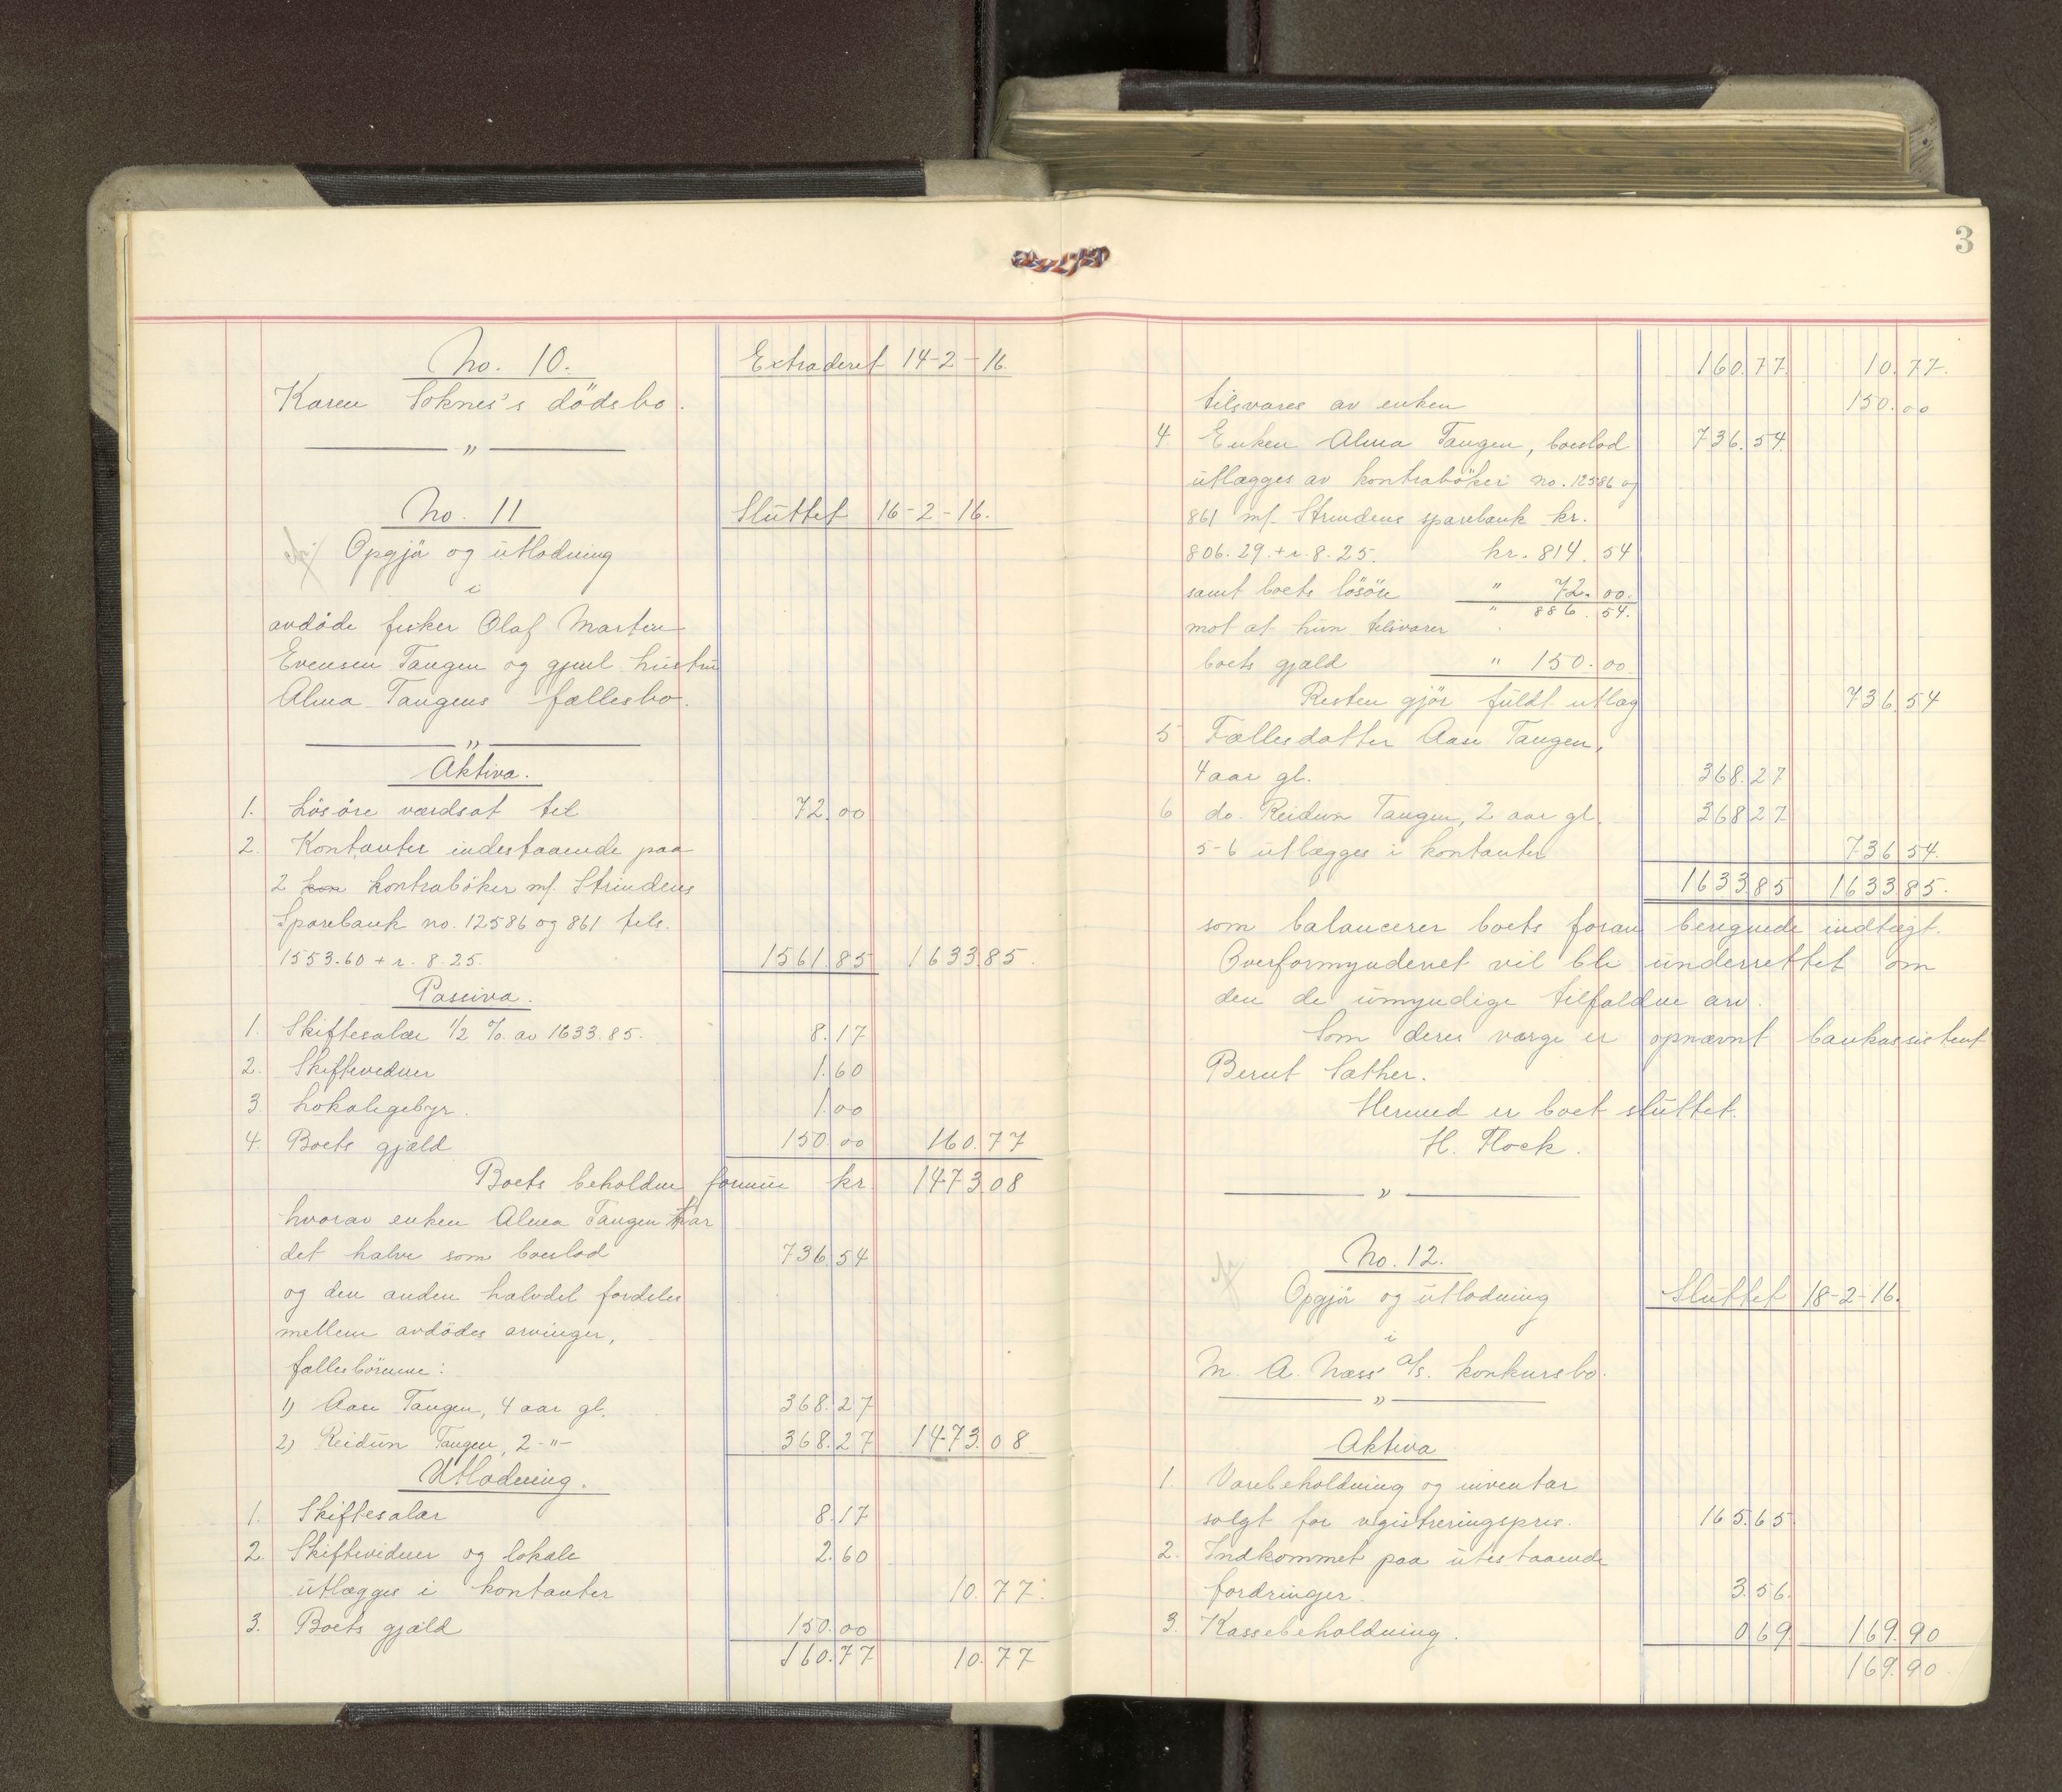 No. 10. Extraderet 14-2-16.
Karen Soknes's dödsbo.
— " —
No. 11 Sluttet 16-2-16.
Opgjör og utlodning
i
avdöde fisker Olaf Martin
Evensen Tangen og gjenl. hustru
Alma Tangens fællesbo.
— " —
Aktiva.
1. Lösöre værdsat til 72.00
2. Kontanter indestaaende paa
2 kontraböker mf. Strindens
Sparebank no. 12586 og 861 tils.
1553.60 + r. 8.25. 1561.85 1633.85.
Passiva.
1. Skiftesalær 1/2 % av 1633.85. 8.17
2. Skiftevidner 1.60
3. Lokalegebyr. 1.00
4. Boets gjæld 150.00 160.77
Boets beholdne formue kr 1473.08
hvorav enken Alma Tangen har
det halve som boeslod 736.54
og den anden halvdel fordeles
mellem avdödes arvinger,
fællesbörnene:
1) Aase Tangen, 4 aar gl. 368.27
2) Reidun Tangen, 2 -"- 368.27 1473.08
Utlodning.
1. Skiftesalær 8.17
2. Skiftevidner og lokale 2.60
utlægges i kontanter 10.77.
3. Boets gjæld 150.00
160.77 10.77
3
160.77. 10.77.
tilsvares av enken 150.00
4 Enken Alma Tangen, boeslod 736.54.
utlægges av kontraböker no. 12586 og
861 mf. Strindens sparebank kr.
806.29 + r. 8.25. kr. 814.54
samt boets lösöre " 72.00.
" 886.54.
mot at hun tilsvarer
boets gjæld " 150.00
Resten gjör fuldt utlæg 736.54
5 Fællesdatter Aase Tangen,
4 aar gl. 368.27
6 do. Reidun Tangen, 2 aar gl. 368.27
5-6 utlægges i kontanter 736.54.
1633.85 1633.85.
som balancerer boets foran beregnede indtægt.
Overformynderiet vil bli underrettet om
den de umyndige tilfaldne arv.
Som deres værge er opnævnt bankassistent
Bernt Sæther.
Hermed er boet sluttet.
H. Flock.
— " —
No. 12.
Opgjör og utlodning Sluttet 18-2-16.
i
M. A. Næss' a/s. konkursbo.
— " —
Aktiva
1. Varebeholdning og inventar
solgt for registreringspris. 165.65
2. Indkommet paa utestaaende
fordringer. 3.56.
3. Kassebeholdning. 0.69 169.90
169.90